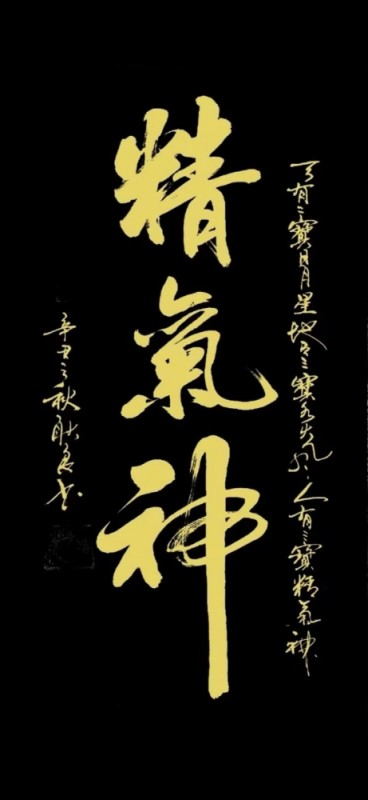 天有三寶日月星地有三寶水火風人有三寶精氣神
精氣神
辛丑之秋耿書